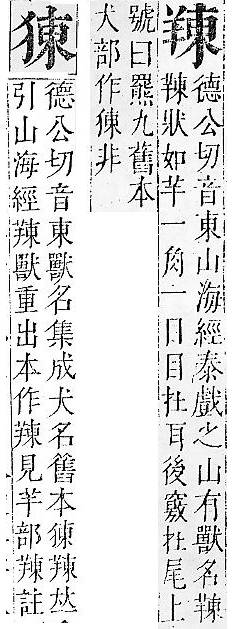 䍶
德公切音東山海經泰戲之山有獸名䍶
䍶狀如羊一角一目目在耳後竅在尾上
號曰羆九舊本
犬部作⿰犭東非
⿰犭東
德公切音東獸名集成犬名舊本⿰犭東䍶𠀤
引山海經䍶獸重出本作䍶見羊部䍶註